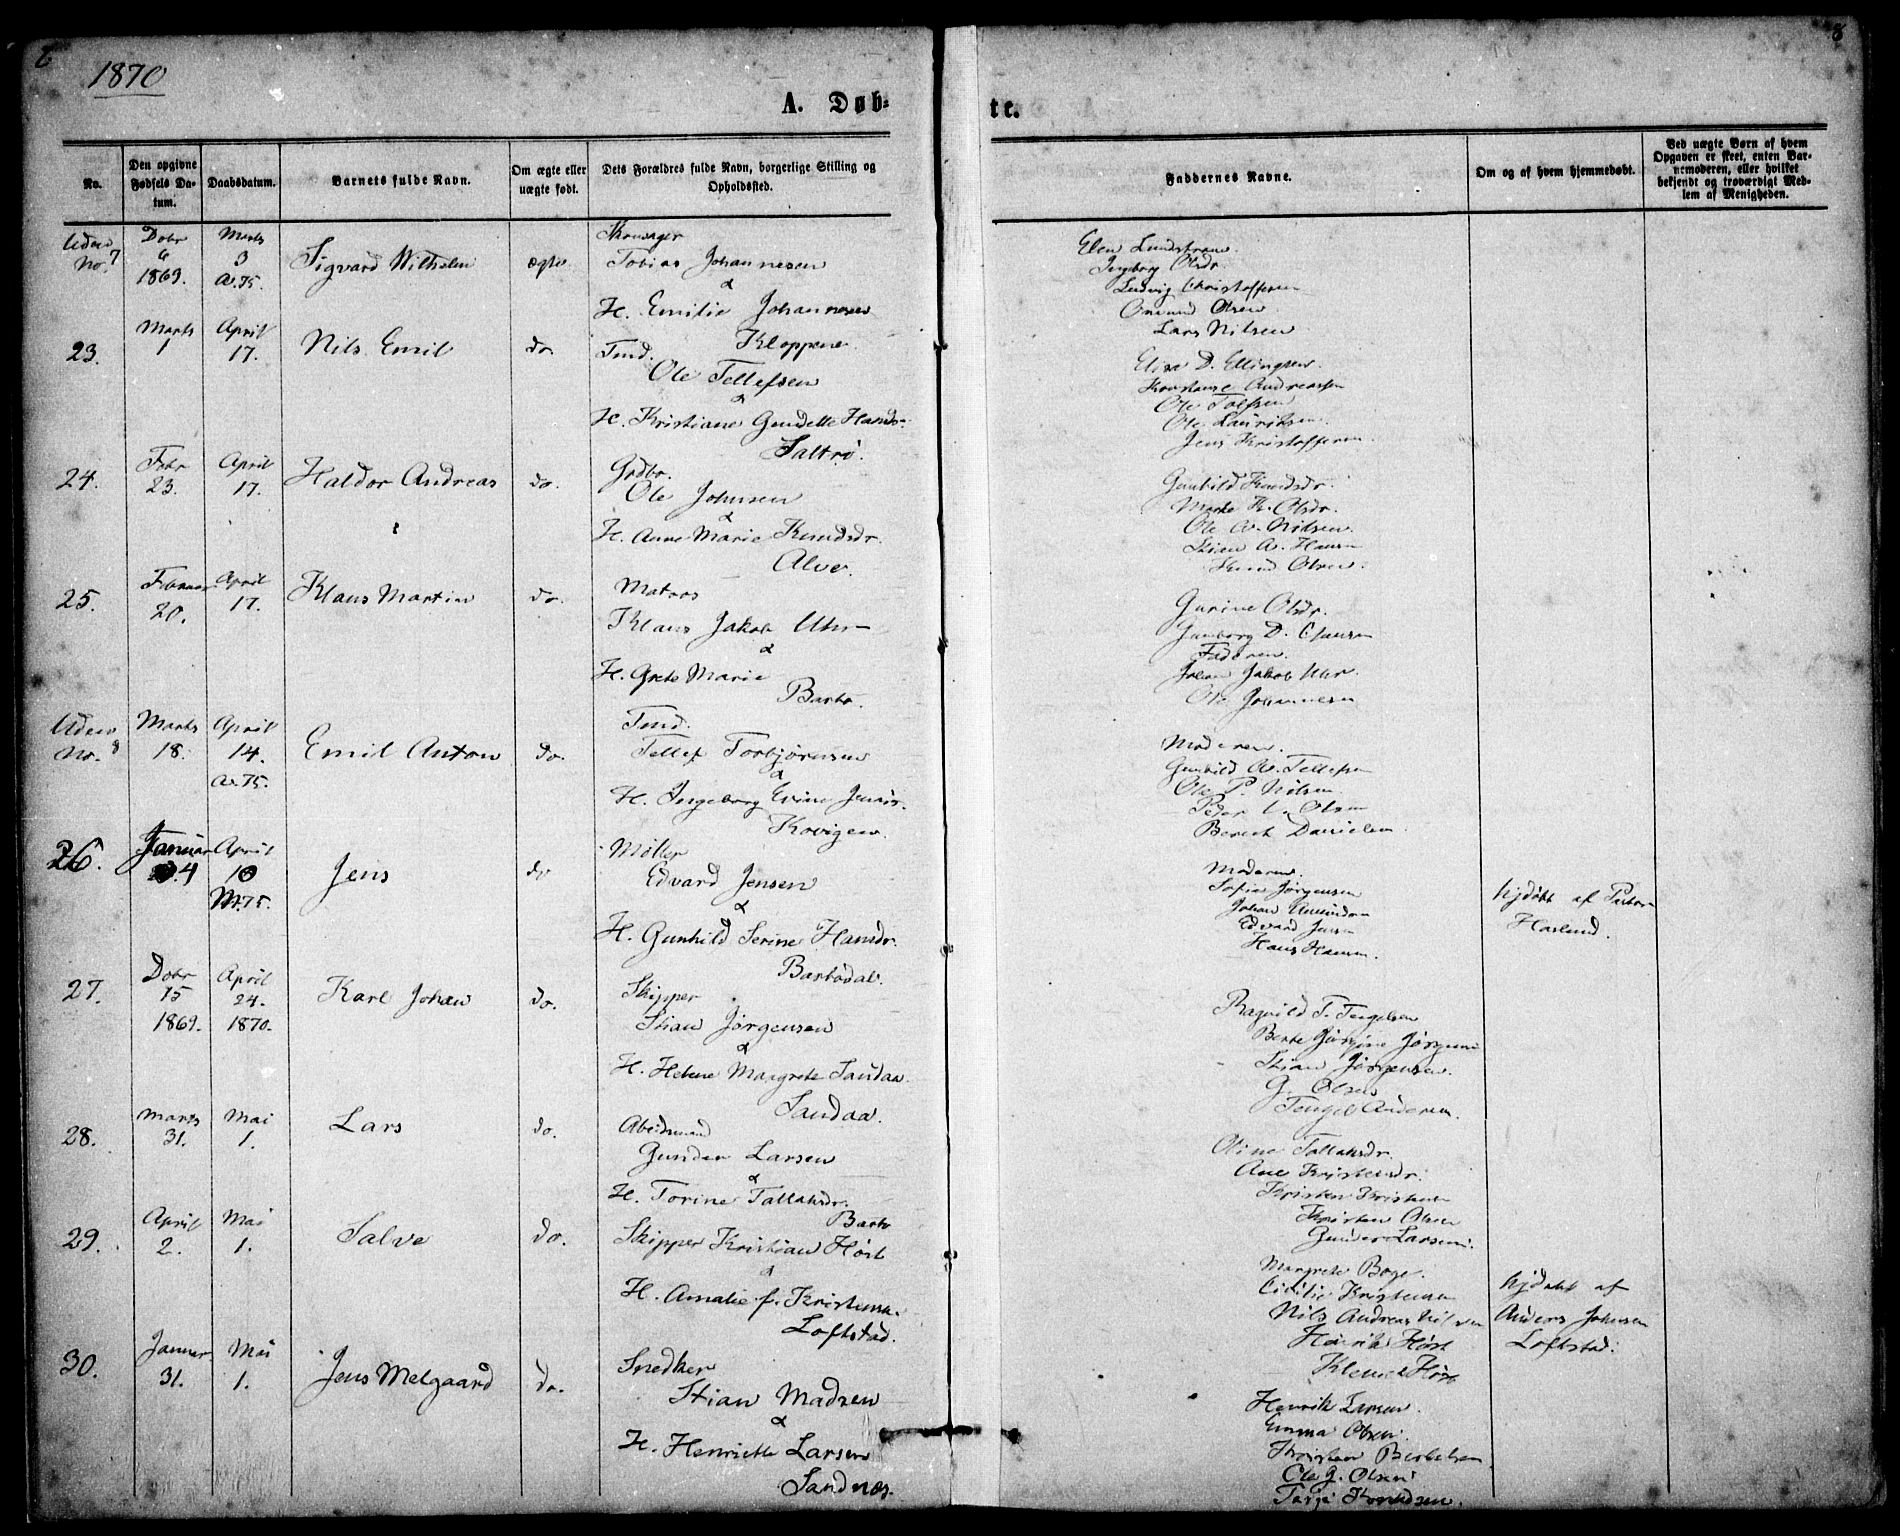 1870
8
A. Døb-
te.
No.
Den opgivne Fødsels Da-tum.
Daabsdatum.
Barnets fulde Navn.
Om ægte eller uægte født.
Dets Forældres fulde Navn, borgerlige Stilling og Opholdsted.
Faddernes Navne.
Om og af hvem hjemmedøbt.
Ved uægte Børn af hvem Opgaven er skeet, enten Bar-nemoderen, eller hvilket bekjendt og troværdigt Med-lem af Menigheden.
Uden No. 7
Dcbr 6 1869.
Marts 3 A.75.
Sigvard Wilhelm
ægte.
Tobias Johannesen
&
H. Emilie Johannesen
Kloppene.
Elen Lundstrøm.
Ingeborg Olsdr.
Ludvig Christoffersen
Omund Olsen
Lars Nilsen
23.
Marts 1
April 17.
Nils Emil
do.
Tmd.
Ole Tellefsen
&
H. Kristiane Gundelle Hansdr.
Saltrø.
Elise D. Ellingsen.
Konstanse Andreassen
Ole Tolfsen
Ole Lauritsen.
Jens Kristoffersen.
24.
Febr 23.
April 17.
Haldor Andreas
do.
Grdbr.
Ole Johnsen
&
H. Anne Marie Knudsdr.
Alve.
Gunhild Knudsdr.
Marte K. Olsdr.
Ole A. Nilsen.
Stian A. Hansen
Knud Olsen.
25.
Februar 20.
April 17.
Klaus Martin
do.
Matros
Klaus Jakob Uhr
&
H. Grete Marie
Barbo.
Gurine Olsdr.
Gunborg D. Clausen
Faderen.
Johan Jakob Uhr.
Ole Johannesen
Uden No. 8
Marts 18.
April 14. A.75.
Emil Anton
do.
Tmd.
Tellef Torbjørnsen
&
H. Ingeborg Evine Jensdr.
Kovigen.
Moderen.
Gunhild A. Tellefsen
Ole P. Nilsen
Peder L. Olsen
Berent Danielsen.
26.
Januar 4
April 10 M.75.
Jens
do
Møller
Edvard Jensen
&
H. Gunhild Serine Hansdr.
Barbodal.
Moderen.
Sofie Jørgensen
Johan Amundsen
Edvard Jensen
Hans Hansen.
hjdøbt af Pastor
Haslund.
27.
Dcbr 15 1869.
April 24. 1870.
Karl Johan
do.
Skipper
Stian Jørgensen
&
H. Helene Margrete Sandaa.
Sandaa.
Ragnild T. Tengelsen
Berte Jørgine Jørgensen
Stian Jørgensen.
G. Olsen
Tengel Andersen.
28.
Marts 31.
Mai 1.
Lars
do.
Abeidsmand
Gunder Larsen
&
H. Torine Tallaksdr.
Barbo
Oline Tallaksdr.
Ane Kristensdr.
Kristen Kristensen
Kristen Olsen
Gunder Larsen.
29.
April 2.
Mai 1.
Salve
do.
Skipper Kristian Høst
&
H. Amalie f. Kristensen.
Loftstad.
Margrete Boye.
Cicilie Kristensen
Nils Andreas Nilsen
Henrik Høst
Klemet Høst
hjdøbt af
Anders Johnsen
Loftstad.
30.
Januar 31.
Mai 1.
Jens Melgaard
do.
Snedker
Stian Madsen
&
H. Henriette Larsen
Sandnæs.
Henrik Larsen.
Emma Olsen.
Kristian Bertelsen
Ole G. Olsen
Tarje Knudsen.